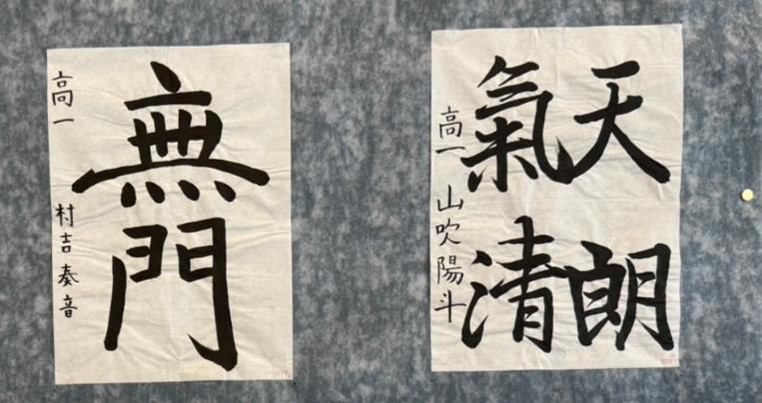 無門
高一 村吉奏音
天朗
氣清
高一 山吹陽斗